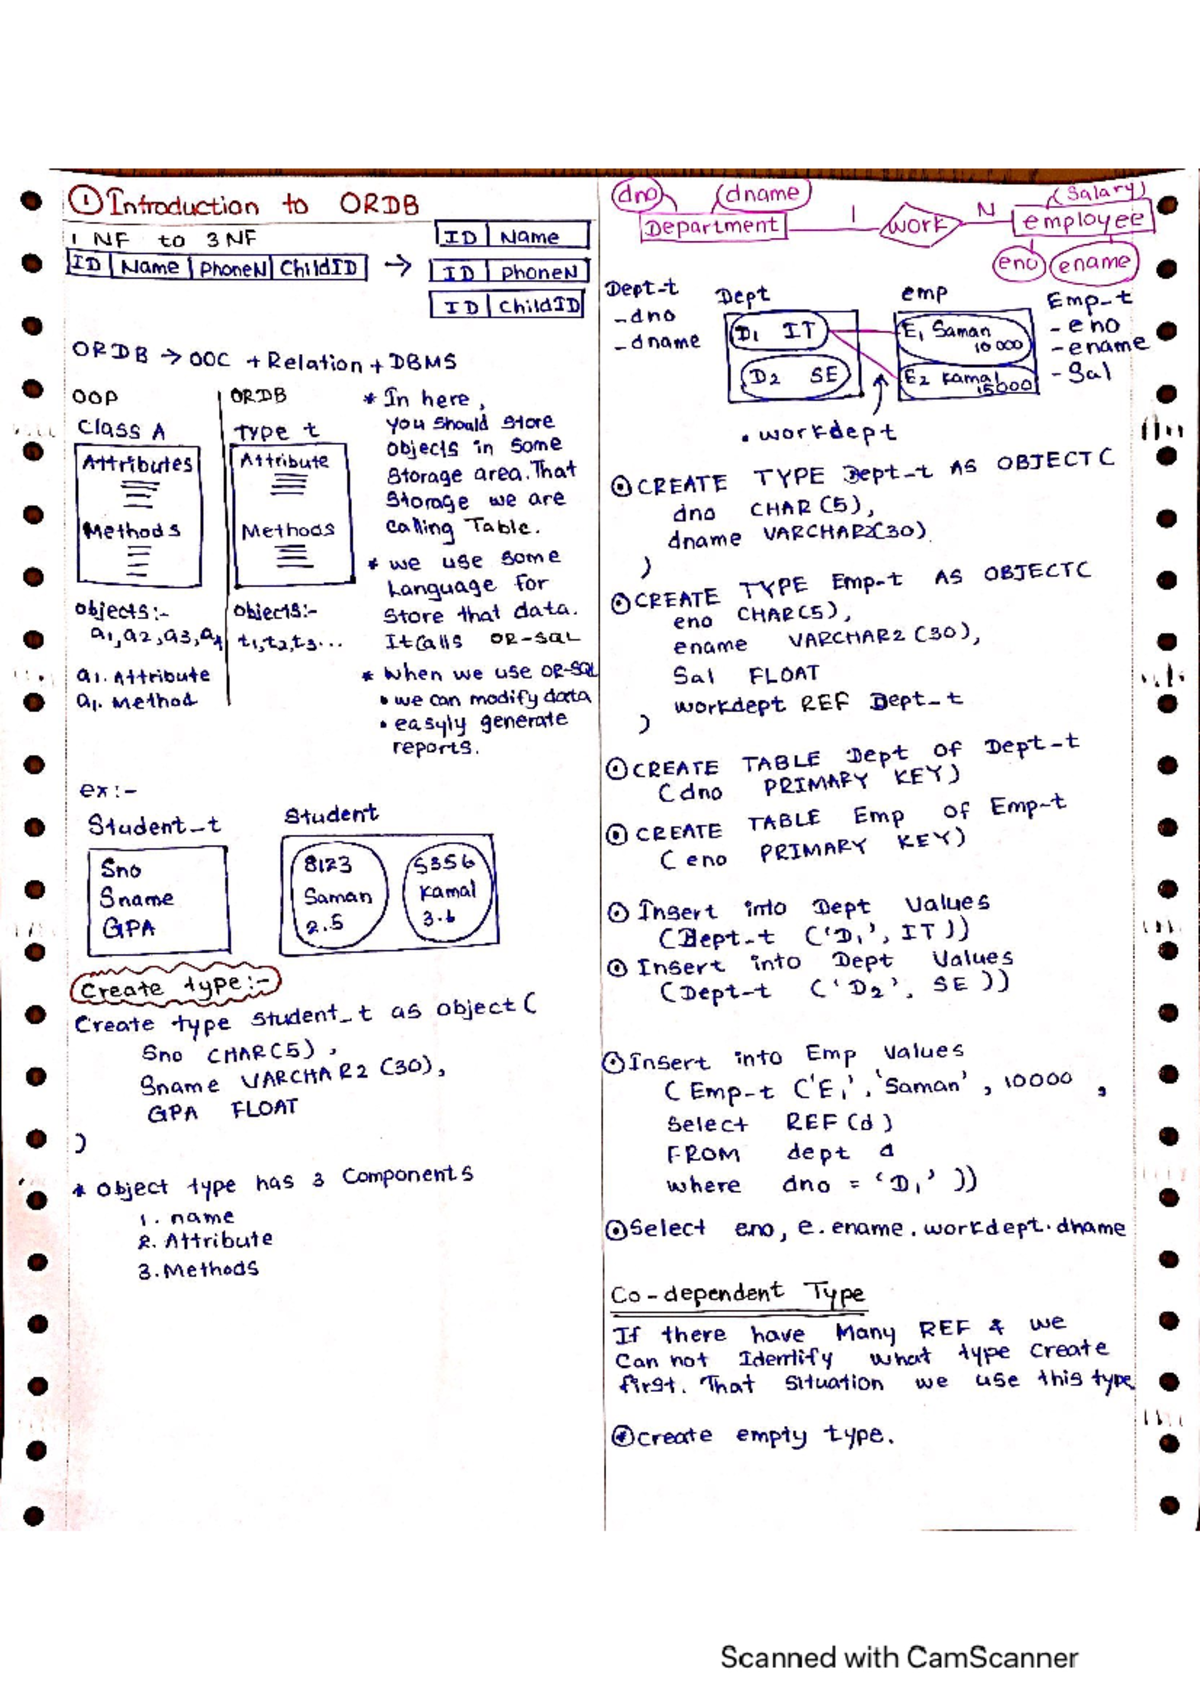 ① Introduction to ORDB
1 NF to 3 NF
ID | Name | PhoneN | ChildID →
ID | Name
ID | PhoneN
ID | ChildID
ORDB → OOC + Relation + DBMS
OOP
Class A
Attributes
Methods
objects:-
a1, a2, a3, a4
a1. Attribute
a1. Method
ORDB
Type t
Attribute
Methods
objects:-
t1, t2, t3...
* In here,
you should store
objects in some
storage area. That
storage we are
calling Table.
* we use some
Language for
Store that data.
It calls OR-SQL
* when we use OR-SQL
• we can modify data
• easyly generate
reports.
ex:-
Student_t
Sno
Sname
GPA
Student
8123
Saman
2.5
5356
Kamal
3.6
Create type:-
Create type student_t as object (
Sno CHAR(5),
Sname VARCHAR2 (30),
GPA FLOAT
)
* Object type has 3 Components
1. name
2. Attribute
3. Methods
dno
dname
Department
1
work
N
employee
Salary
eno
ename
Dept-t
- dno
- dname
Dept
D1 IT
D2 SE
emp
E1 Saman
10 000
E2 Kamal
15000
Emp-t
- eno
- ename
- Sal
• workdept
⊙ CREATE TYPE Dept-t AS OBJECT (
dno CHAR (5),
dname VARCHAR2(30).
)
⊙ CREATE TYPE Emp-t AS OBJECT (
eno CHAR(5),
ename VARCHAR2 (30),
Sal FLOAT
workdept REF Dept-t
)
⊙ CREATE TABLE Dept of Dept-t
( dno PRIMARY KEY )
⊙ CREATE TABLE Emp of Emp-t
( eno PRIMARY KEY )
⊙ Insert into Dept Values
( Dept-t ('D1', IT ))
⊙ Insert into Dept Values
( Dept-t ('D2', SE ))
⊙ Insert into Emp Values
( Emp-t ('E1', 'Saman', 10000 ,
Select REF (d)
FROM dept d
where dno = 'D1' ))
⊙ Select eno, e.ename.workdept.dname
Co-dependent Type
If there have Many REF & we
Can not Identify what type create
first. That situation we use this type
⊙ create empty type.
Scanned with CamScanner